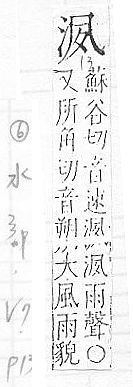 洬
蘇谷切音速洬洬雨聲○
又所角切音朔〃大風雨貌
⑥水部.V7.